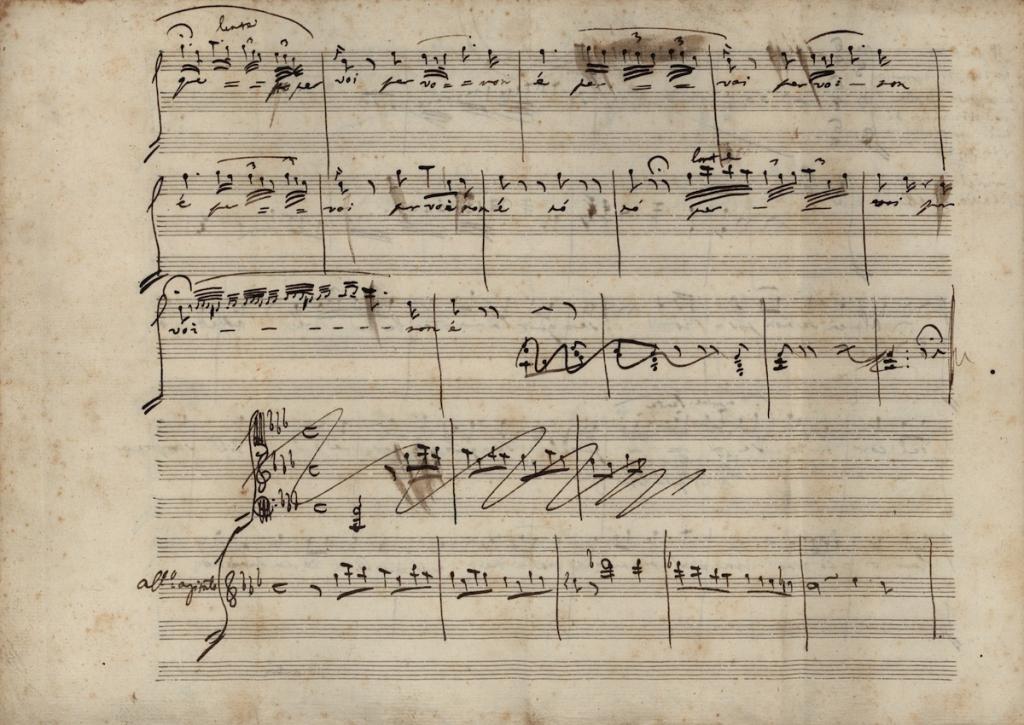 lento
per = = = per voi per vo = = voi è per = = voi per voi - son
lento
è per = = voi per voi son è sò sò per - = voi per
voi - - - - - - - son è
all.º agitato